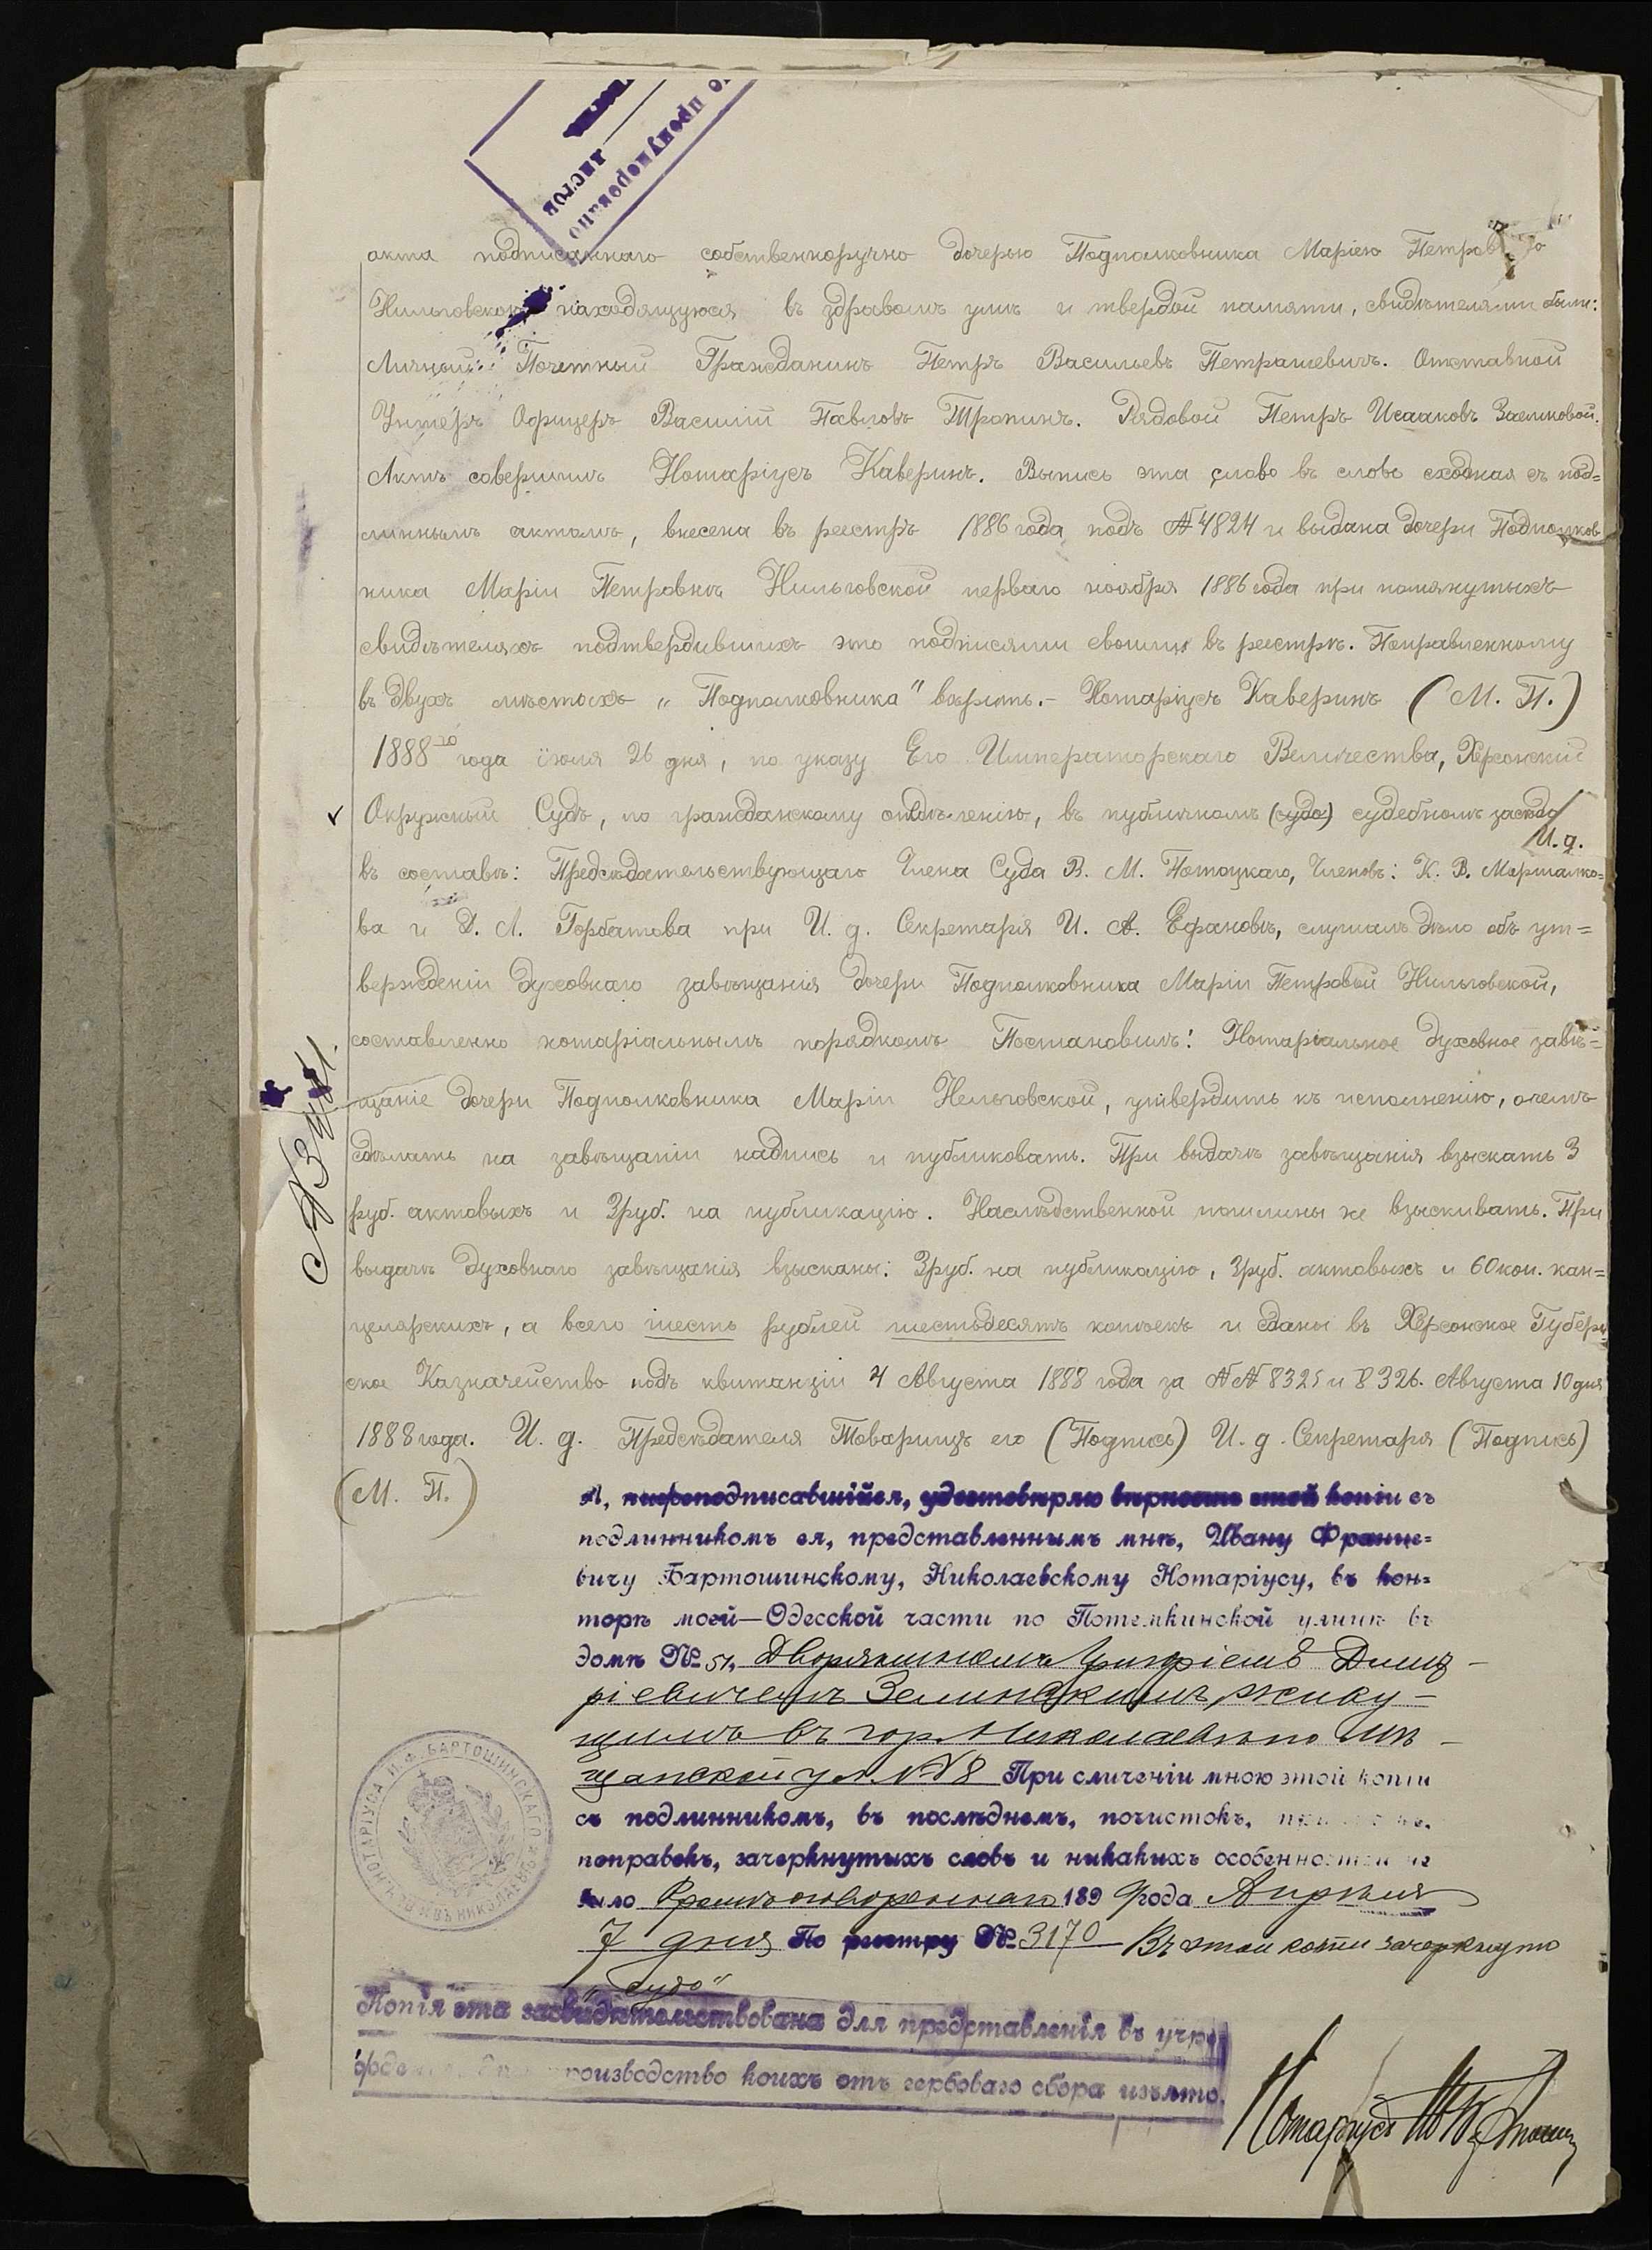 листовъ
пронумеровано
акта подписаннаго собственноручно дочерью Подполковника Маріею Петров
Нильговскою находящуюся въ здравомъ умѣ и твердой памяти, свидѣтелями были:
Личный Почетный Гражданинъ Петръ Васильевъ Петрашевичъ. Отставной
Унтеръ Офицеръ Василій Павловъ Тропинъ. Рядовой Петръ Исааковъ
Актъ совершилъ Нотаріусъ Каверинъ. Выпись эта слово въ слово сходная съ под=
линнымъ актомъ, внесена въ реестръ 1886 года подъ № 4824 и выдана дочери Подполков
ника Маріи Петровнѣ Нильговской перваго ноября 1886 года при помянутыхъ
свидѣтеляхъ подтвердившихъ это подписями своими въ реестрѣ. Поправленному
въ двухъ мѣстахъ „Подполковника" вѣрить.- Нотаріусъ Каверинъ (М. П.)
1888го года іюля 26 дня, по указу Его Императорскаго Величества, Херсонскій
Окружный Судъ, по гражданскому отдѣленію, въ публичномъ (суда) судебномъ засѣд
И. д.
въ составѣ: Предсѣдательствующаго Члена Суда В. М. Потоцкаго, Членовъ: К. В. Маршалко=
ва и Д. Л. Горбатова при И. д. Секретаря И. А. Ефановѣ, слушалъ дѣло объ ут=
вержденіи духовнаго завѣщанія дочери Подполковника Маріи Петровой Нильговской,
составленно нотаріальнымъ порядкомъ Постановилъ: Нотаріальное духовное завѣ=
щаніе дочери Подполковника Маріи Нельговской, утвердить къ исполненію, очемъ
сдѣлать на завѣщаніи надпись и публиковать. При выдачѣ завѣщанія взыскать 3
руб. актовыхъ и 3руб. на публикацію. Наслѣдственной пошлины не взыскивать. При
выдачѣ духовнаго завѣщанія взысканы: 3руб. на публикацію, 3руб. актовыхъ и 60коп. кан=
целярскихъ, а всего шесть рублей шестьдесятъ копѣекъ и сданы въ Херсонское Губерн
ское Казначейство подъ квитанціи 4 Августа 1888 года за №№ 8325 и 8326. Августа 10 дня
1888 года. И. д. Предсѣдателя Товарищъ его (Подпись) И. д. Секретаря (Подпись)
(М. П.)
Я, нижеподписавшійся, удостовѣряю вѣрность этой копіи съ
подлинникомъ ея, представленнымъ мнѣ, Ивану Франце=
вичу Бартошинскому, Николаевскому Нотаріусу, въ кон=
торѣ моей—Одесской части по Потемкинской улицѣ въ
домѣ № 51, Дворяниномъ Григоріемъ Дмит-
ріевичемъ Зелинскимъ, живу-
щимъ въ гор. Николаевѣ по Мѣ-
щанской ул. № 8 При сличеніи мною этой копіи
съ подлинникомъ, въ послѣднемъ, почистокъ,
поправокъ, зачеркнутыхъ словъ и никакихъ особенностей не
было Кромѣ оговореннаго 1899 года Апрѣля
7 дня По реестру № 3170 Въ этой копіи зачеркнуто
„суда"
Копія эта засвидѣтельствована для представленія въ учре
производство коихъ отъ гербоваго сбора изъято.
НОТАРІУСА И. Ф. БАРТОШИНСКАГО ВЪ НИКОЛАЕВѢ
Нотаріусъ